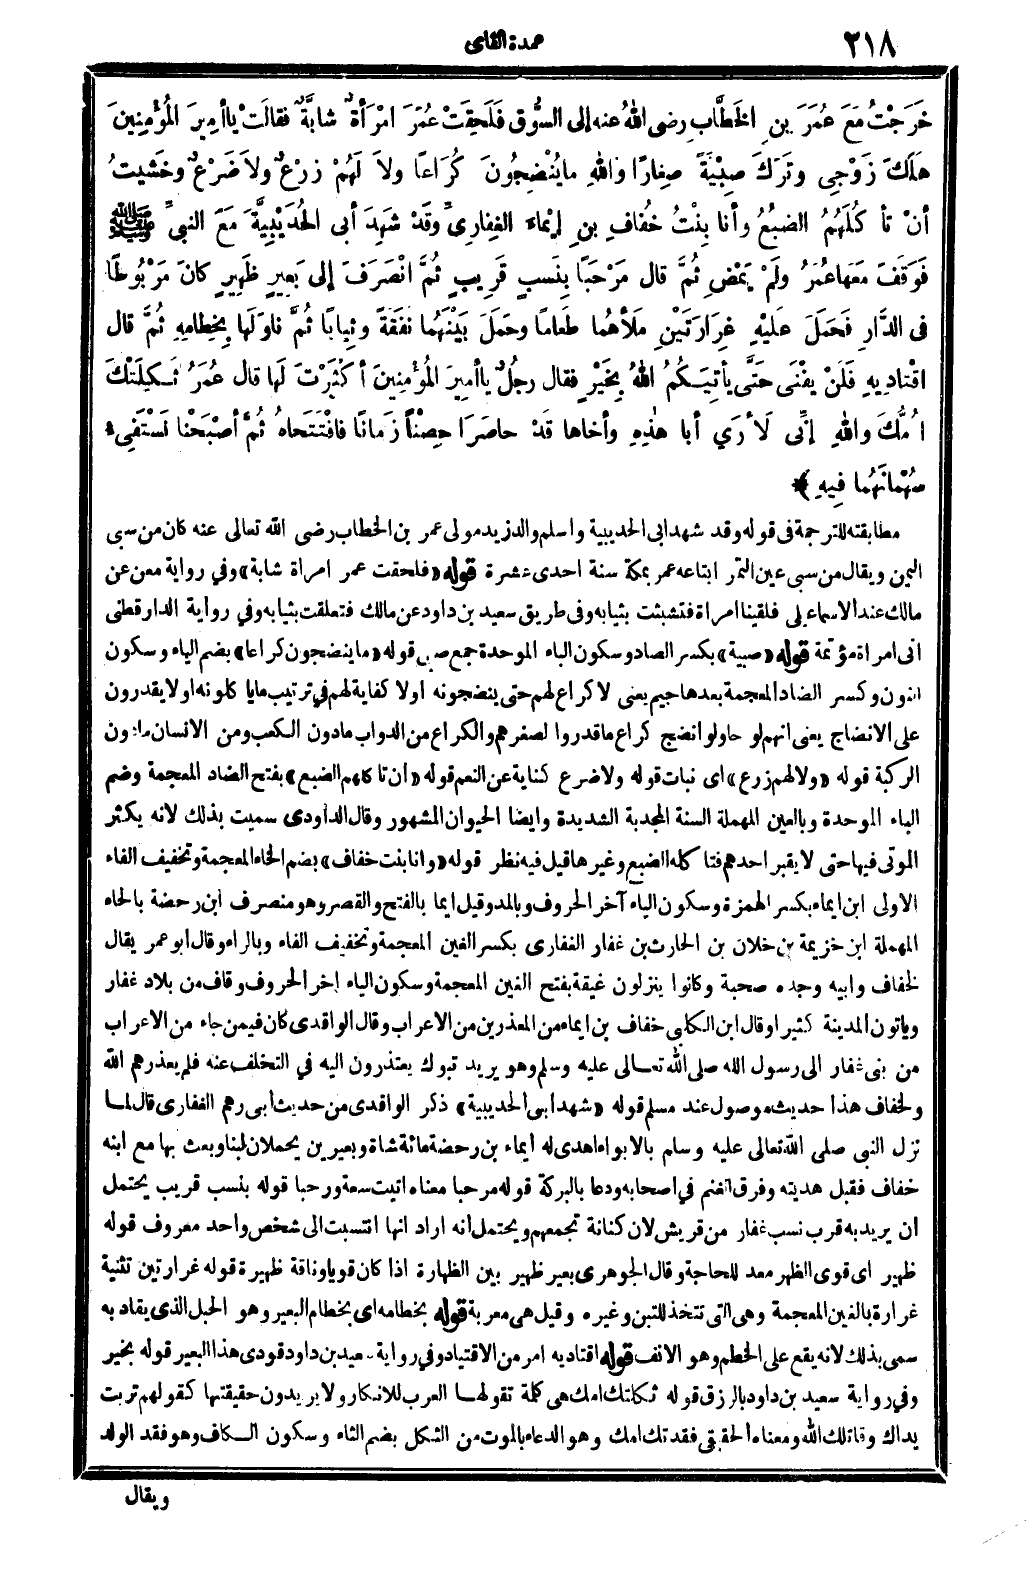 ٢١٨
عمدة القاى
خَرَجْتُ مَعَ عُمَرَ بنِ الخَطَّابِ رضى اللهُ عنه إلى السُّوقِ فَلَحِقَتْ عُمَرَ امْرَأةٌ شابَّةٌ فقالَتْ ياأمِيرَ المُؤْمِنِينَ
هَلَكَ زَوْجِى وتَرَكَ صِبْيَةً صِغارًا واللهِ مايُنْضِجُونَ كُرَاعًا ولاَ لَهُمْ زرْعٌ ولاَ ضَرْعٌ وخَشيتُ
أنْ تأكُلَهُمُ الضبُعُ وأنا بِنْتُ خُفافِ بنِ إيْماء الغِفارِىِّ وقَدْ شَهِدَ أبى الحُدَيْبِيَةَ مَعَ النبىِّ ﷺ
فَوَقَفَ مَعَهاعُمَرُ ولَمْ يَمْضِ ثُمَّ قال مَرْحَبًا بِنَسبٍ قَرِيبٍ ثُمَّ انْصَرَفَ إلى بَعِيرٍ ظَهِيرٍ كانَ مَرْبُوطًا
فى الدَّارِ فَحَمَلَ عَلَيْهِ غِرَارَتَيْنِ مَلأهُما طَعامًا وحَمَلَ بَيْنَهُما نفَقَةً وثِيابًا ثُمَّ ناوَلَها بِخِطامِهِ ثُمَّ قال
اقْتادِيهِ فَلَنْ يفْنَى حَتَّى يأتِيَكُمُ اللهُ بِخَيْرٍ فقال رجلٌ ياأميرَ المُؤْمِنِينَ أكْثَرْتَ لَها قال عُمَرُ ثَكِلَتْكَ
امُّكَ واللهِ إنِّى لَأرَي أبا هٰذِهِ وأخاها قدْ حاصَرَا حِصْنًا زَمانًا فافْتَتَحاهُ ثُمَّ أصْبَحْنا نَسْتَفِىءُ
سُهْمانَهُما فِيهِ﴾
مطابقته للترجمة فى قوله وقد شهد ابى الحديبية واسلم والد زيد مولى عمر بن الخطاب رضى الله تعالى عنه كان من سبى
اليمن ويقال من سبى عين التمر ابتاعه عمر بمكة سنة احدى عشرة قوله «فلحقت عمر امراة شابة» وفي رواية معن عن
مالك عند الاسماعيلى فلقينا امراة فتشبثت بثيابه وفى طريق سعيد بن داود عن مالك فتعلقت بثيابه وفي رواية الدارقطنى
انى امراة مؤتمة قوله «صبية» بكسر الصاد وسكون الباء الموحدة جمع صبى قوله «ما ينضجون كراعا» بضم الياء وسكون
النون وكسر الضاد المعجمة بعدها جيم يعنى لا كراع لهم حتى ينضجونه اولا كفاية لهم في ترتيب ما يا كلونه اولا يقدرون
على الانضاج يعنى انهم لو حاولوا نضج كراع ما قدروا لصغرهم والكراع من الدواب مادون الكعب ومن الانسان مادون
الركبة قوله «ولا لهم زرع» اى نبات قوله ولا ضرع كناية عن النعم قوله «ان تاكلهم الضبع» بفتح الضاد المعجمة وضم
الباء الموحدة وبالعين المهملة السنة المجدبة الشديدة وايضا الحيوان المشهور وقال الداودى سميت بذلك لانه يكثر
الموتى فيها حتى لا يقبر احدهم فتاكله الضبع وغيرها قيل فيه نظر قوله «وانا بنت خفاف» بضم الخاء المعجمة وتخفيف الفاء
الاولى ابن ايماء بكسر الهمزة وسكون الياء آخر الحروف وبالمد وقيل ايما بالفتح والقصر وهو منصرف ابن رحضة بالحاء
المهملة ابن خزيمة بن خلان بن الحارث بن غفار الغفارى بكسر الغين المعجمة وتخفيف الفاء وبالراء وقال ابو عمر يقال
لخفاف وابيه وجده صحبة وكانوا ينزلون غيقة بفتح الغين المعجمة وسكون الياء اخر الحروف وقاف من بلاد غفار
وياتون المدينة كثيرا وقال ابن الكلبى خفاف بن ايماء من المعذرين من الاعراب وقال الواقدى كان فيمن جاء من الاعراب
من بنى غفار الى رسول الله صلى الله تعالى عليه وسلم وهو يريد تبوك يعتذرون اليه في التخلف عنه فلم يعذرهم الله
ولخفاف هذا حديث موصول عند مسلم قوله «شهد ابى الحديبية» ذكر الواقدى من حديث أبى رهم الغفارى قال لما
نزل النبى صلى الله تعالى عليه وسلم بالابواء اهدى له ايماء بن رحضة مائة شاة وبعيرين يحملان لبنا وبعث بها مع ابنه
خفاف فقبل هديته وفرق الغنم في اصحابه ودعا بالبركة قوله مرحبا معناه اتيت سعة ورحبا قوله بنسب قريب يحتمل
ان يريد به قرب نسب غفار من قريش لان كنانة تجمعهم ويحتمل انه اراد انها انتسبت الى شخص واحد معروف قوله
ظهير اى قوى الظهر معد للحاجة وقال الجوهرى بعير ظهير بين الظهارة اذا كان قويا وناقة ظهيرة قوله غرارتين تثنية
غرارة بالغين المعجمة وهى التى تتخذ للتبن وغيره وقيل هى معربة قوله بخطامه اى بخطام البعير وهو الحبل الذى يقاد به
سمى بذلك لانه يقع على الخطم وهو الانف قوله اقتاديه امر من الاقتياد وفي رواية سعيد بن داود قودى هذا البعير قوله بخير
وفي رواية سعيد بن داود بالرزق قوله ثكلتك امك هى كلمة تقولها العرب للانكار ولا يريدون حقيقتها كقولهم تربت
يداك وقاتلك الله ومعناه الحقيقى فقدتك امك وهو الدعاء بالموت من الثكل بضم الثاء وسكون الكاف وهو فقد الولد
ويقال